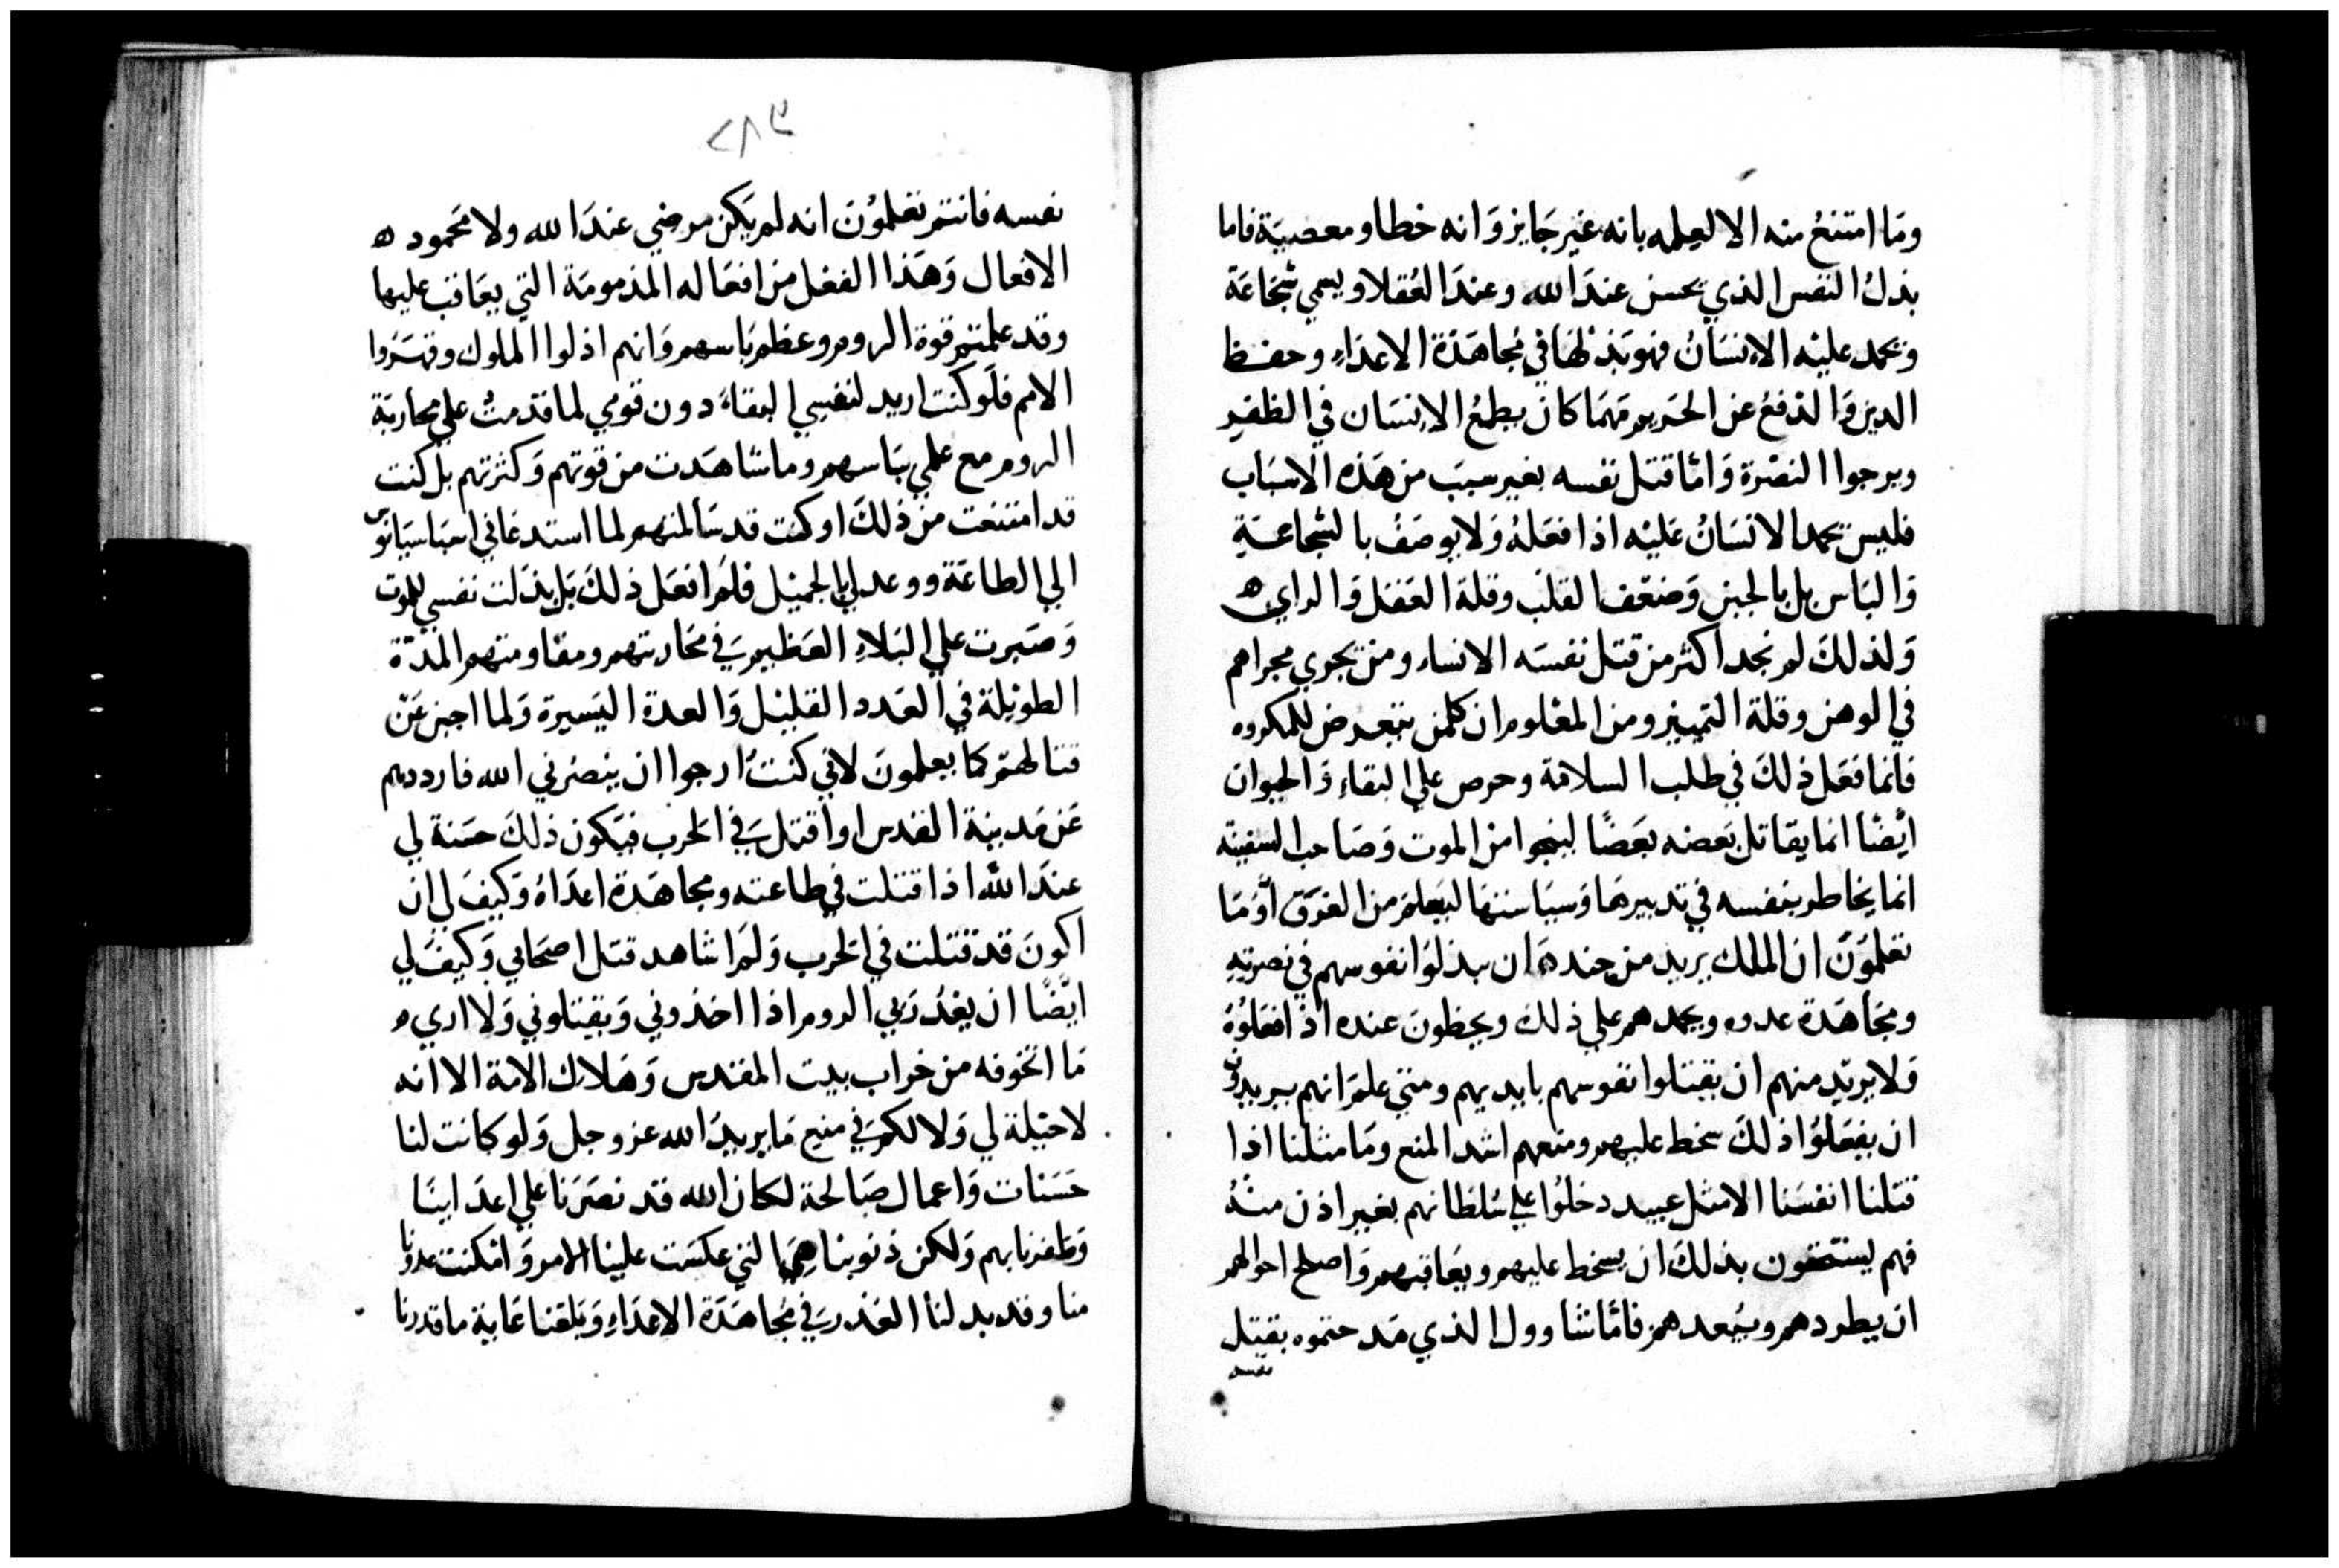 وما امتنع منه الا لعلمه بانه غير جايز وانه خطا ومعصية فاما
بذل النفس الذي يحسن عند الله وعند العقلا ويسمي شجاعة
ويحمد عليه الانسان فهو بذلها في مجاهدة الاعداء وحفظ
الدين والدفع عن الحريم مهما كان يطمع الانسان في الظفر
ويرجوا النصرة واما قتل نفسه بغير سبب من هذه الاسباب
فليس يحمد الانسان عليه اذا فعله ولا يوصف بالشجاعة
والباس بل بالجبن وضعف القلب وقلة العقل والراي
ولذلك لم نجد اكثر من قتل نفسه الا نساء ومن يجري مجراهم
في الوهن وقلة التمييز ومن المعلوم ان كلمن يتعرض للمكروه
فانما فعل ذلك في طلب السلامة وحرص علي البقاء والحيوان
ايضا انما يقاتل بعضه بعضا لينجوا من الموت وصاحب السفينة
انما يخاطر بنفسه في تدبيرها وسياستها ليعلم من الغرق او ما
تعلمون ان الملك يريد من جنده ان يبذلوا نفوسهم في نصرته
ومجاهدة عدوه ويحمدهم علي ذلك ويحظون عنده اذا فعلوه
ولا يريد منهم ان يقتلوا نفوسهم بايديهم ومتي علم انهم يريدون
ان يفعلوا ذلك سخط عليهم ومنعهم اشد المنع وما مثلنا اذا
قتلنا انفسنا الا مثل عبيد دخلوا علي سلطانهم بغير اذن منه
فهم يستحقون بذلك ان يسخط عليهم ويعاقبهم واصلح احوالهم
ان يطردهم ويبعدهم فاما شاوول الذي مدحتموه بقتل
نفسه
٢٨٣
نفسه فانتم تعلمون انه لم يكن مرضي عند الله ولا محمود
الافعال وهذا الفعل من افعاله المذمومة التي يعاقب عليها
وقد علمتم قوة الروم وعظم باسهم وانهم اذلوا الملوك وقهروا
الامم فلو كنت اريد لنفسي البقاء دون قومي لما قدمت علي محاربة
الروم مع علمي بباسهم وما شاهدت من قوتهم وكثرتهم بل كنت
قد امتنعت من ذلك او كنت قد سالمتهم لما استدعاني اسباسيانوس
الي الطاعة ووعدني بالجميل فلم افعل ذلك بل بذلت نفسي للموت
وصبرت علي البلاء العظيم في محاربتهم ومقاومتهم المدة
الطويلة في العدد القليل والعدة اليسيرة ولما اجبن عن
قتالهم كما يعلمون لاني كنت ارجوا ان ينصرني الله فارددهم
عن مدينة القدس او اقتل في الحرب فيكون ذلك حسنة لي
عند الله اذا قتلت في طاعته ومجاهدة اعداه وكيف لي ان
اكون قد قتلت في الحرب ولم اشاهد قتل اصحابي وكيف لي
ايضا ان يغدر بي الروم اذا اخذوني ويقتلوني ولا اري
ما اتخوفه من خراب بيت المقدس وهلاك الامة الا انه
لا حيلة لي ولا لكم في منع ما يريد الله عز وجل ولو كانت لنا
حسنات واعمال صالحة لكان الله قد نصرنا علي اعداينا
وظفرنا بهم ولكن ذنوبنا هي التي عكست علينا الامر وامكنت عدونا
منا وقد بدلنا العذر في مجاهدة الاعداء وبلغنا غاية ما قدرنا